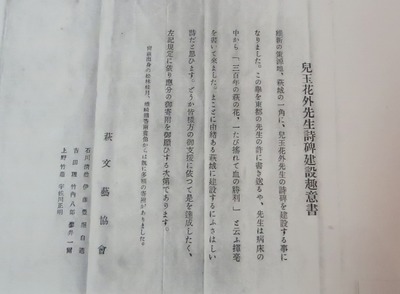 兒玉花外先生詩碑建設趣意書
維新の策源地、萩城の一角に、兒玉花外先生の詩碑を建設する事に
なりました。この擧を東都の先生の許に書き送るや、先生は病床の
中から「三百年の萩の花、一たび搖れて血の勝利」と云ふ揮毫
を書いて來ました。まことに由緒ある萩城に建設するにふさはしい
詩だと思ひます。どうか皆樣方の御支援に依つて是を達成したく、
左記規定に依り應分の御寄附を御願ひする次第であります。
萩文藝協會
吉田
竹內八郎
藤井一
上野竹逸
宇佐川正明